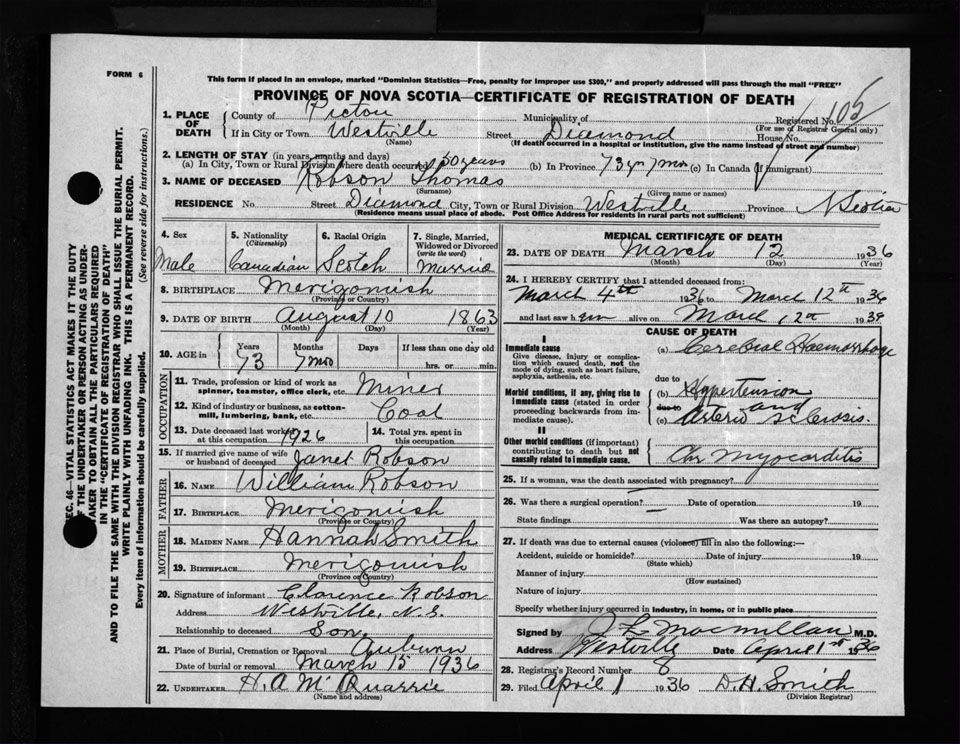 FORM 6
This form if placed in an envelope, marked "Dominion Statistics—Free, penalty for improper use $300," and properly addressed will pass through the mail "FREE"
PROVINCE OF NOVA SCOTIA—CERTIFICATE OF REGISTRATION OF DEATH
105
1. PLACE OF DEATH County of Pictou Municipality of Registered No.
(For use of Registrar General only)
If in City or Town Westville Street Diamond House No.
(Name) (If death occurred in a hospital or institution, give the name instead of street and number)
2. LENGTH OF STAY (in years, months and days)
(a) In City, Town or Rural Division where death occurred 50 years (b) In Province 73 yr 7 mos (c) In Canada (if immigrant)
3. NAME OF DECEASED Robson Thomas
(Surname) (Given name or names)
RESIDENCE No. Street Diamond City, Town or Rural Division Westville Province N Scotia
(Residence means usual place of abode. Post Office Address for residents in rural parts not sufficient)
4. Sex Male
5. Nationality (Citizenship) Canadian
6. Racial Origin Scotch
7. Single, Married, Widowed or Divorced (write the word) Married
8. BIRTHPLACE Merigomish
(Province or Country)
9. DATE OF BIRTH August 10 1863
(Month) (Day) (Year)
10. AGE in Years Months Days If less than one day old
73 7 mos hrs. or min.
OCCUPATION
11. Trade, profession or kind of work as spinner, teamster, office clerk, etc. Miner
12. Kind of industry or business, as cotton-mill, lumbering, bank, etc. Coal
13. Date deceased last worked at this occupation 1926
14. Total yrs. spent in this occupation
15. If married give name of wife or husband of deceased Janet Robson
FATHER
16. NAME William Robson
17. BIRTHPLACE Merigomish
(Province or Country)
MOTHER
18. MAIDEN NAME Hannah Smith
19. BIRTHPLACE Merigomish
(Province or Country)
20. Signature of informant Clarence Robson
Address Westville, N.S.
Relationship to deceased Son
21. Place of Burial, Cremation or Removal Auburn
Date of burial or removal March 15 1936
22. UNDERTAKER H. A McQuarrie
(Name and address)
MEDICAL CERTIFICATE OF DEATH
23. DATE OF DEATH March 12 1936
(Month) (Day) (Year)
24. I HEREBY CERTIFY that I attended deceased from:
March 4th 1936 to March 12th 1936
and last saw him alive on March 12th 1939
CAUSE OF DEATH
I
Immediate cause (a) Cerebral Haemorrhage
Give disease, injury or complication which caused death, not the mode of dying, such as heart failure, asphyxia, asthenia, etc.
due to
Morbid conditions, if any, giving rise to immediate cause (stated in order proceeding backwards from immediate cause).
(b) Hypertension
due to and
(c) Arterio sclerosis
II
Other morbid conditions (if important) contributing to death but not causally related to immediate cause.
Chr Myocarditis
25. If a woman, was the death associated with pregnancy?
26. Was there a surgical operation? Date of operation 19
State findings Was there an autopsy?
27. If death was due to external causes (violence) fill in also the following:—
Accident, suicide or homicide? Date of injury 19
(State which)
Manner of injury
(How sustained)
Nature of injury
Specify whether injury occurred in industry, in home, or in public place
Signed by J L Macmillan M.D.
Address Westville Date April 1st 1936
28. Registrar's Record Number 8
29. Filed April 1 1936 D. H. Smith
(Division Registrar)
SEC. 46—VITAL STATISTICS ACT MAKES IT THE DUTY
OF THE UNDERTAKER OR PERSON ACTING AS UNDER-
TAKER TO OBTAIN ALL THE PARTICULARS REQUIRED
IN THE "CERTIFICATE OF REGISTRATION OF DEATH"
AND TO FILE THE SAME WITH THE DIVISION REGISTRAR WHO SHALL ISSUE THE BURIAL PERMIT.
WRITE PLAINLY WITH UNFADING INK. THIS IS A PERMANENT RECORD.
Every item of information should be carefully supplied. (See reverse side for instructions.)